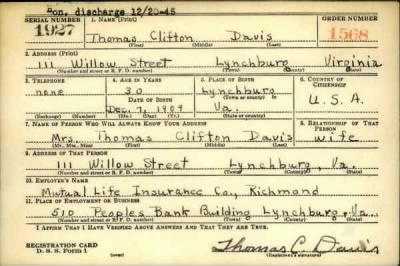 Hon. discharge 12/20-45
SERIAL NUMBER 1. NAME (Print) ORDER NUMBER
1927 Thomas Clifton Davis 1568
(First) (Middle) (Last)
2. ADDRESS (Print)
111 Willow Street Lynchburg Virginia
(Number and street or R. F. D. number) (Town) (County) (State)
3. TELEPHONE 4. AGE IN YEARS 5. PLACE OF BIRTH 6. COUNTRY OF CITIZENSHIP
none 30 Lynchburg U.S.A.
DATE OF BIRTH (Town or county)
Dec. 7, 1909 Va.
(Exchange) (Number) (Mo.) (Day) (Yr.) (State or country)
7. NAME OF PERSON WHO WILL ALWAYS KNOW YOUR ADDRESS 8. RELATIONSHIP OF THAT PERSON
Mrs. Thomas Clifton Davis wife
(Mr., Mrs., Miss) (First) (Middle) (Last)
9. ADDRESS OF THAT PERSON
111 Willow Street Lynchburg, Va.
(Number and street or R. F. D. number) (Town) (County) (State)
10. EMPLOYER'S NAME
Mutual Life Insurance Co., Richmond
11. PLACE OF EMPLOYMENT OR BUSINESS
510 Peoples Bank Building Lynchburg, Va.
(Number and street or R. F. D. number) (Town) (County) (State)
I AFFIRM THAT I HAVE VERIFIED ABOVE ANSWERS AND THAT THEY ARE TRUE.
REGISTRATION CARD
D. S. S. Form 1
Thomas C. Davis
(Registrant's signature)